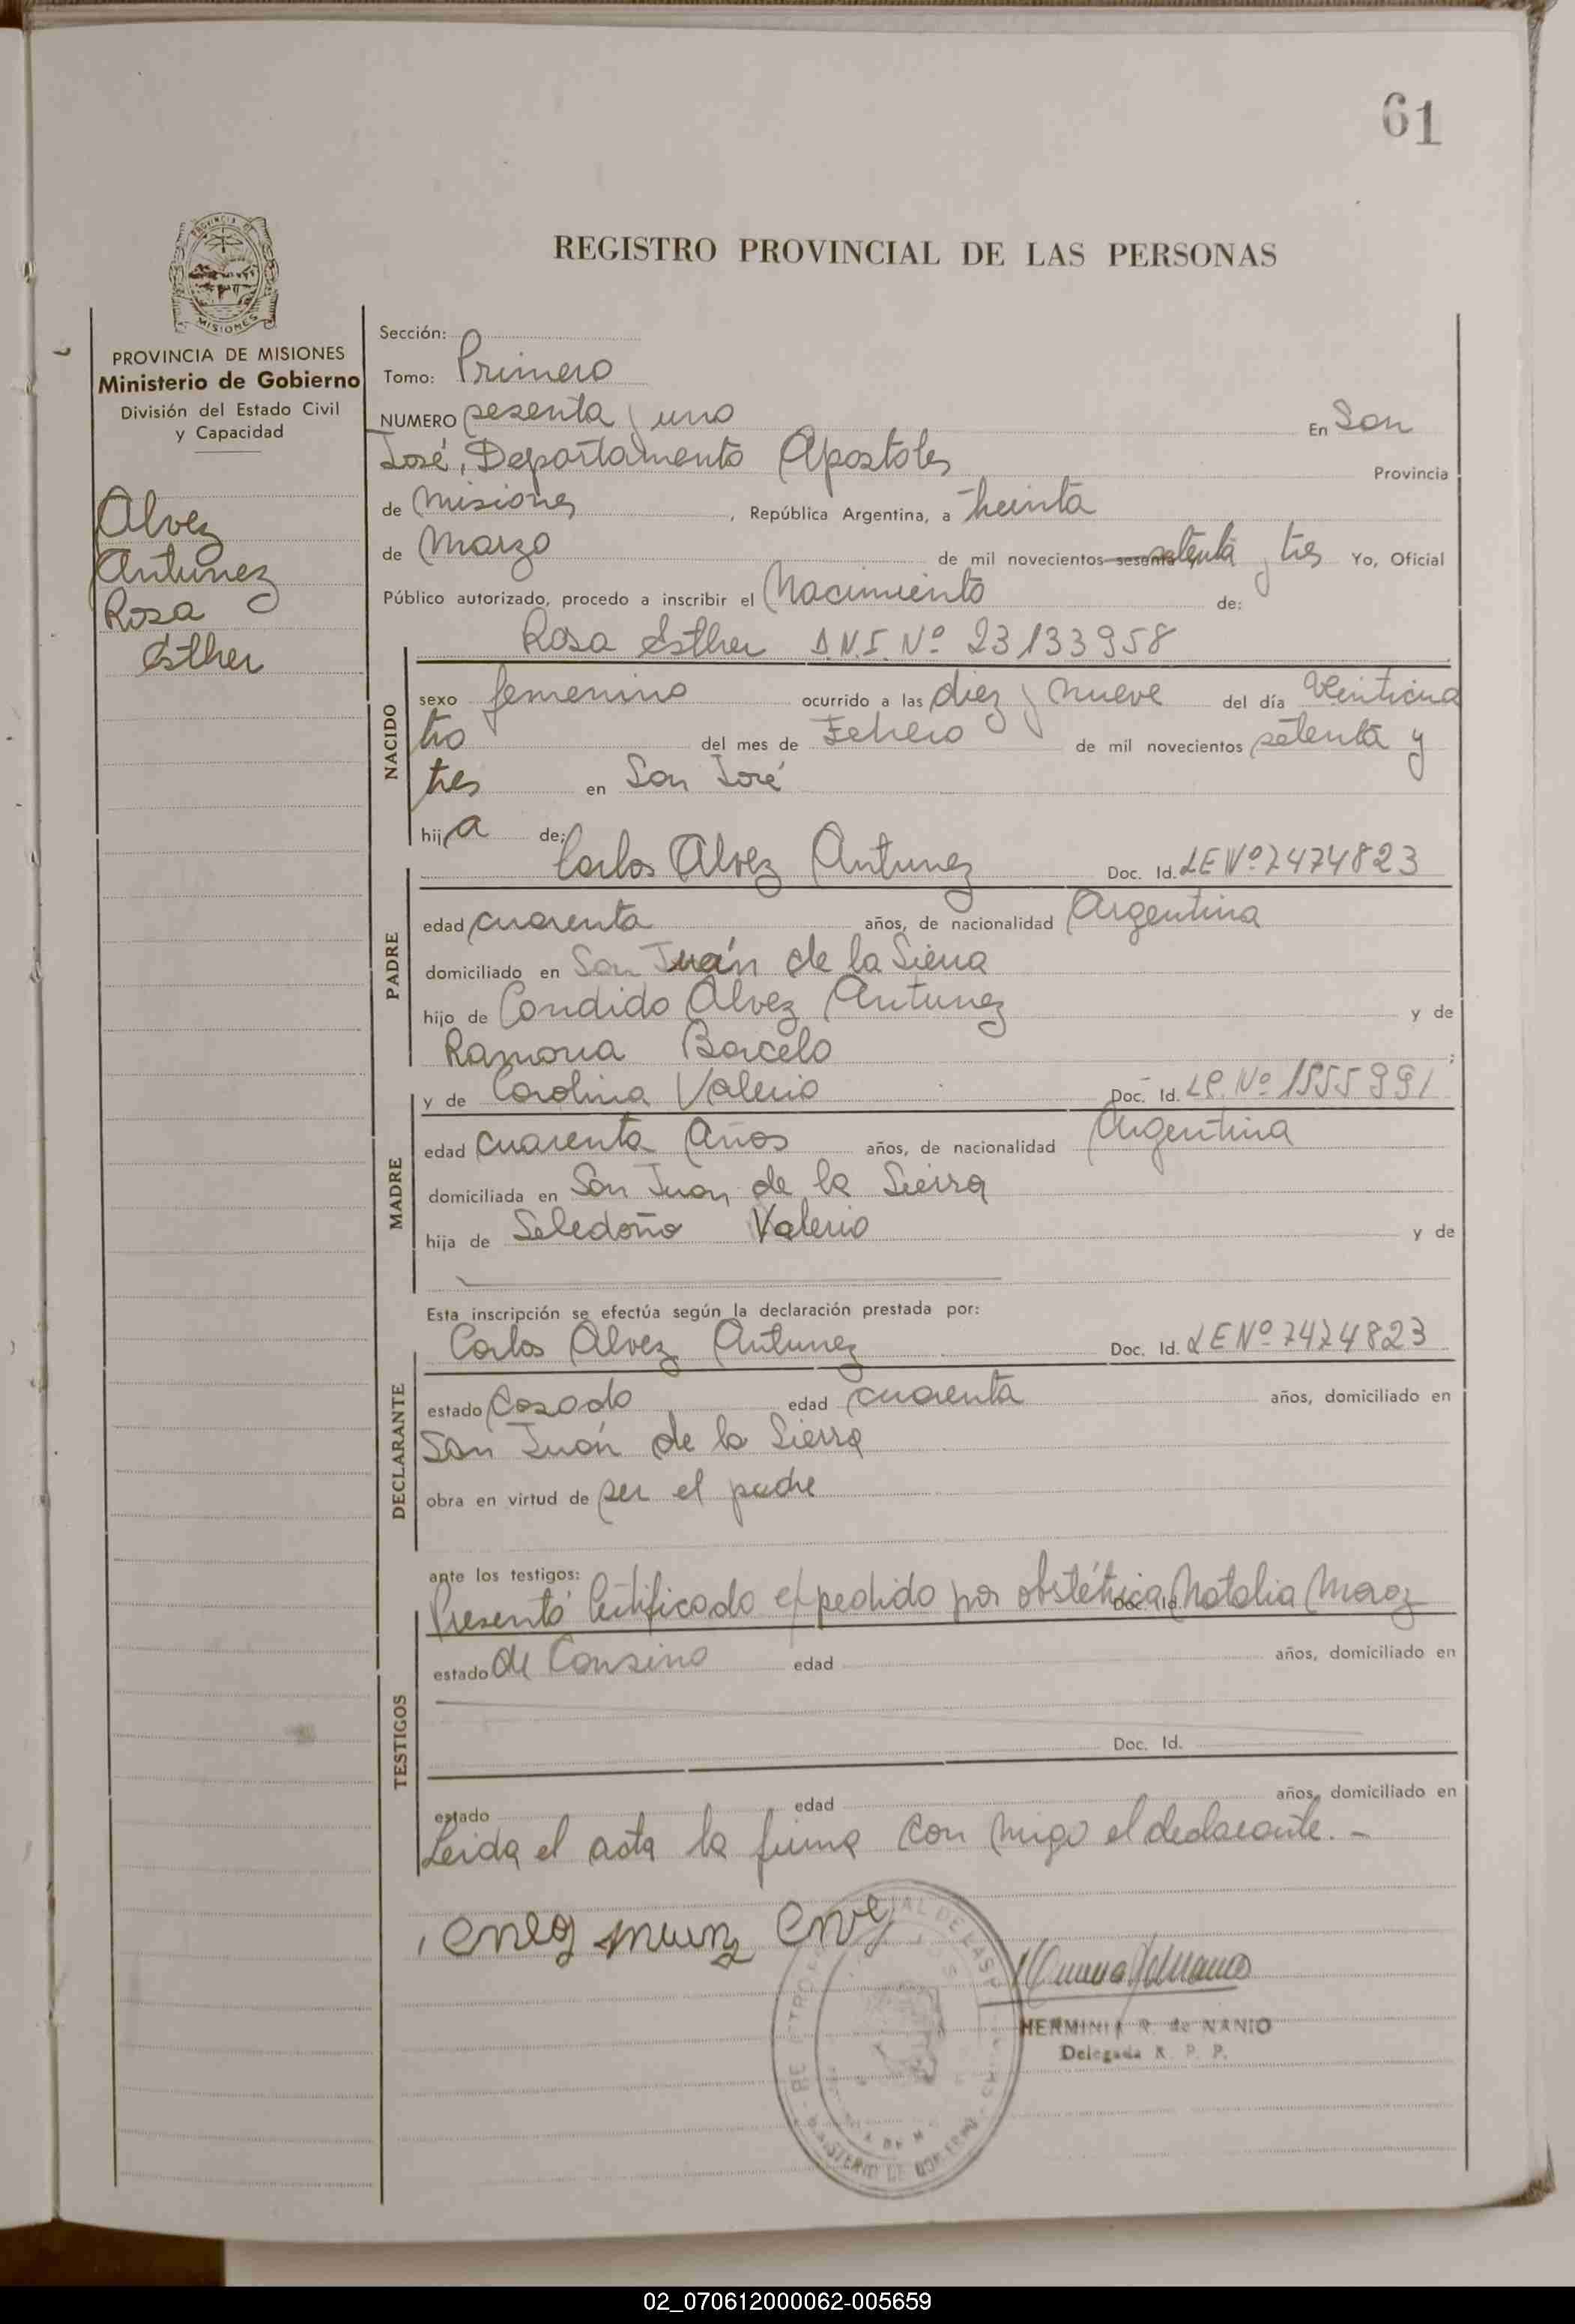 61
PROVINCIA DE MISIONES
REGISTRO PROVINCIAL DE LAS PERSONAS
PROVINCIA DE MISIONES
Ministerio de Gobierno
División del Estado Civil
y Capacidad
Alvez
Antunez
Rosa
Esther
Sección:
Tomo: Primero
NUMERO sesenta y uno En San
José, Departamento Apostoles Provincia
de Misiones , República Argentina, a treinta
de Marzo de mil novecientos sesenta setenta y tres Yo, Oficial
Público autorizado, procedo a inscribir el Nacimiento de:
Rosa Esther D.N.I. Nº 23133958
NACIDO
sexo femenino ocurrido a las diez y nueve del día Veinticua
tro del mes de Febrero de mil novecientos setenta y
tres en San José
hija de:
Carlos Alvez Antunez Doc. Id. LE Nº 7474823
PADRE
edad cuarenta años, de nacionalidad Argentina
domiciliado en San Juán de la Sierra
hijo de Condido Alvez Antunez y de
Ramona Barcelo ;
y de Carolina Valerio Doc. Id. LC. Nº 1555991
MADRE
edad cuarenta Años años, de nacionalidad Argentina
domiciliada en San Juan de la Sierra
hija de Seledoño Valerio y de
Esta inscripción se efectúa según la declaración prestada por:
Carlos Alvez Antunez Doc. Id. LE Nº 7474823
DECLARANTE
estado Casado edad cuarenta años, domiciliado en
San Juán de la Sierra
obra en virtud de ser el padre
ante los testigos:
Presentó Certificado expedido por obstétrica Natalia Moroz Doc. Id.
TESTIGOS
estado de Consino edad años, domiciliado en
Doc. Id.
estado edad años, domiciliado en
Leida el acta la firma con migo el declarante. -
HERMINIA R. de NANIO
Delegada R. P. P.
MINISTERIO DE GOBIERNO
02_070612000062-005659